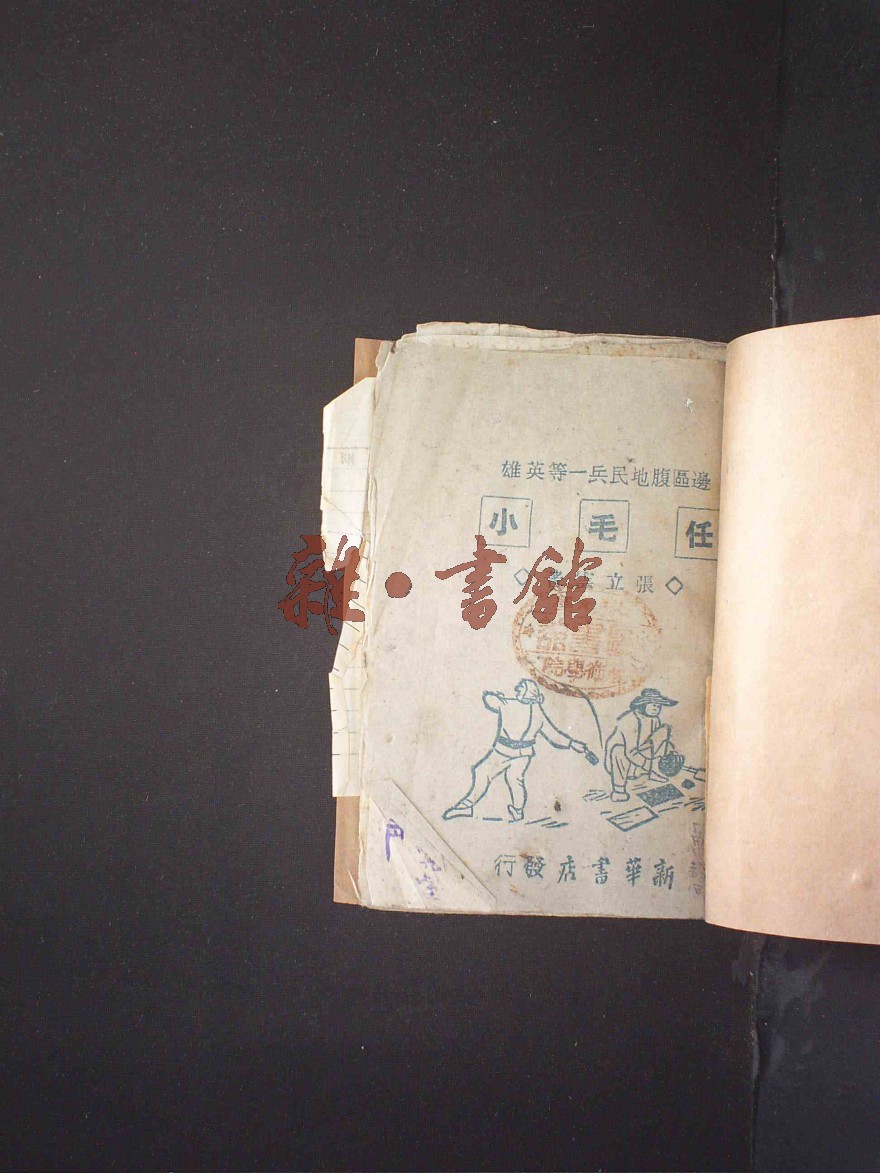 邊區腹地民兵一等英雄
任毛小
張立
新華書店發行
圖書館
術學院
雜·書館